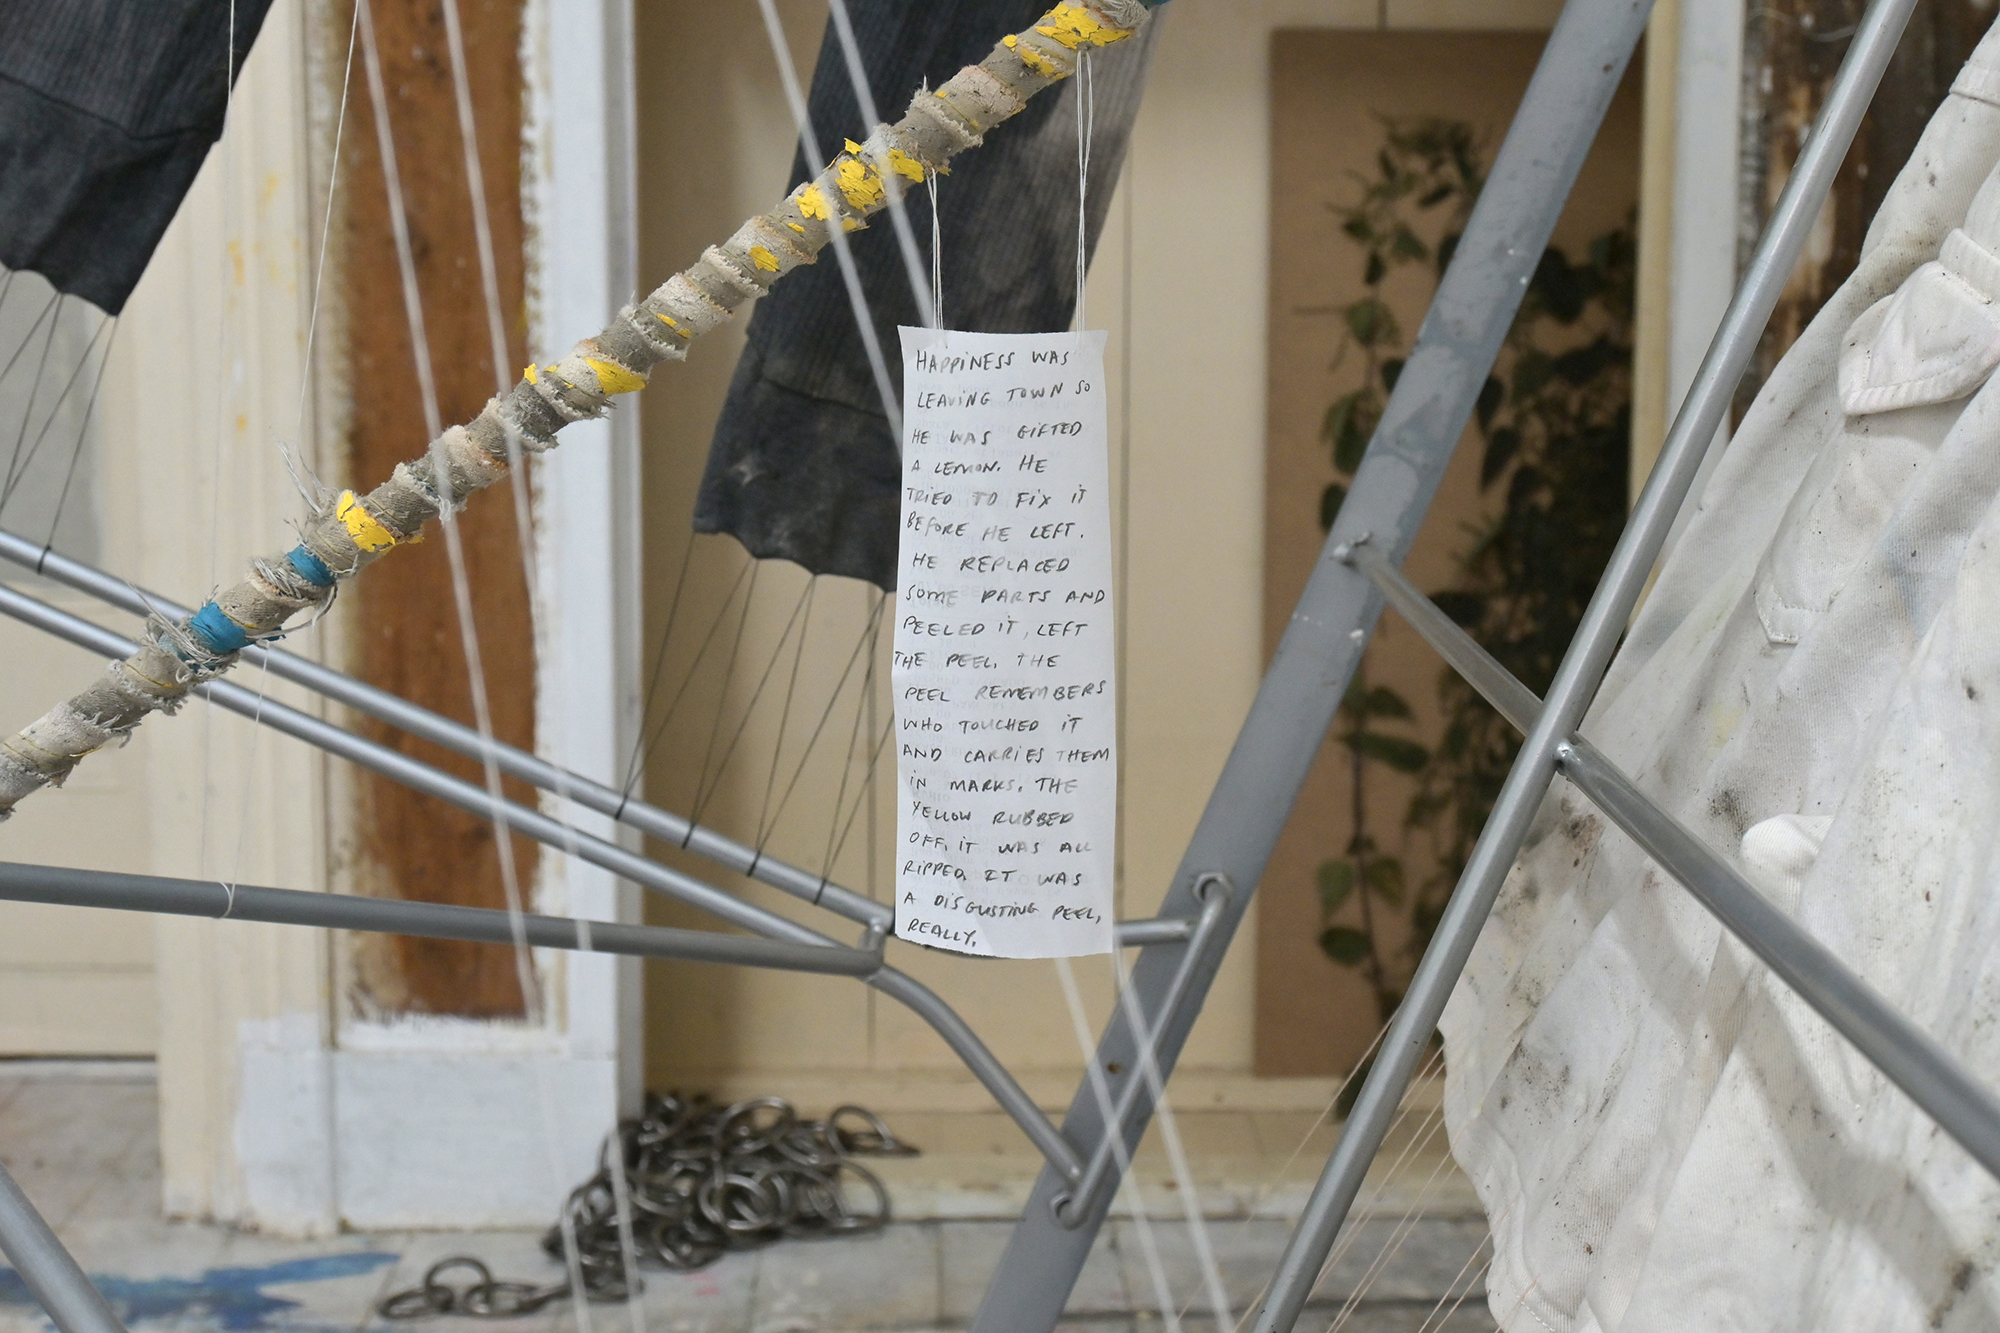 HAPPINESS WAS
LEAVING TOWN SO
HE WAS GIFTED
A LEMON. HE
TRIED TO FIX IT
BEFORE HE LEFT.
HE REPLACED
SOME PARTS AND
PEELED IT, LEFT
THE PEEL. THE
PEEL REMEMBERS
WHO TOUCHED IT
AND CARRIES THEM
IN MARKS. THE
YELLOW RUBBED
OFF. IT WAS ALL
RIPPED. IT WAS
A DISGUSTING PEEL,
REALLY.